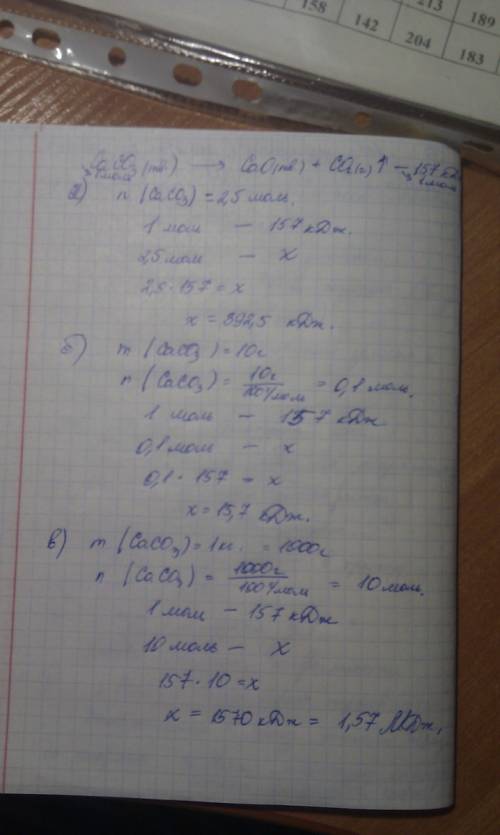 158
142
204
213
183
189
CaCO₃(тв) → CaO(тв) + CO₂(г)↑ − 157 кДж
1 моль 1 моль
а) n (CaCO₃) = 2,5 моль.
1 моль — 157 кДж.
2,5 моль — x
2,5 · 157 = x
x = 392,5 кДж.
б) m (CaCO₃) = 10г
n (CaCO₃) = 10г / 100г/моль = 0,1 моль.
1 моль — 157 кДж
0,1 моль — x
0,1 · 157 = x
x = 15,7 кДж.
в) m (CaCO₃) = 1кг. = 1000г
n (CaCO₃) = 1000г / 100г/моль = 10 моль.
1 моль — 157 кДж
10 моль — x
157 · 10 = x
x = 1570 кДж = 1,57 МДж.